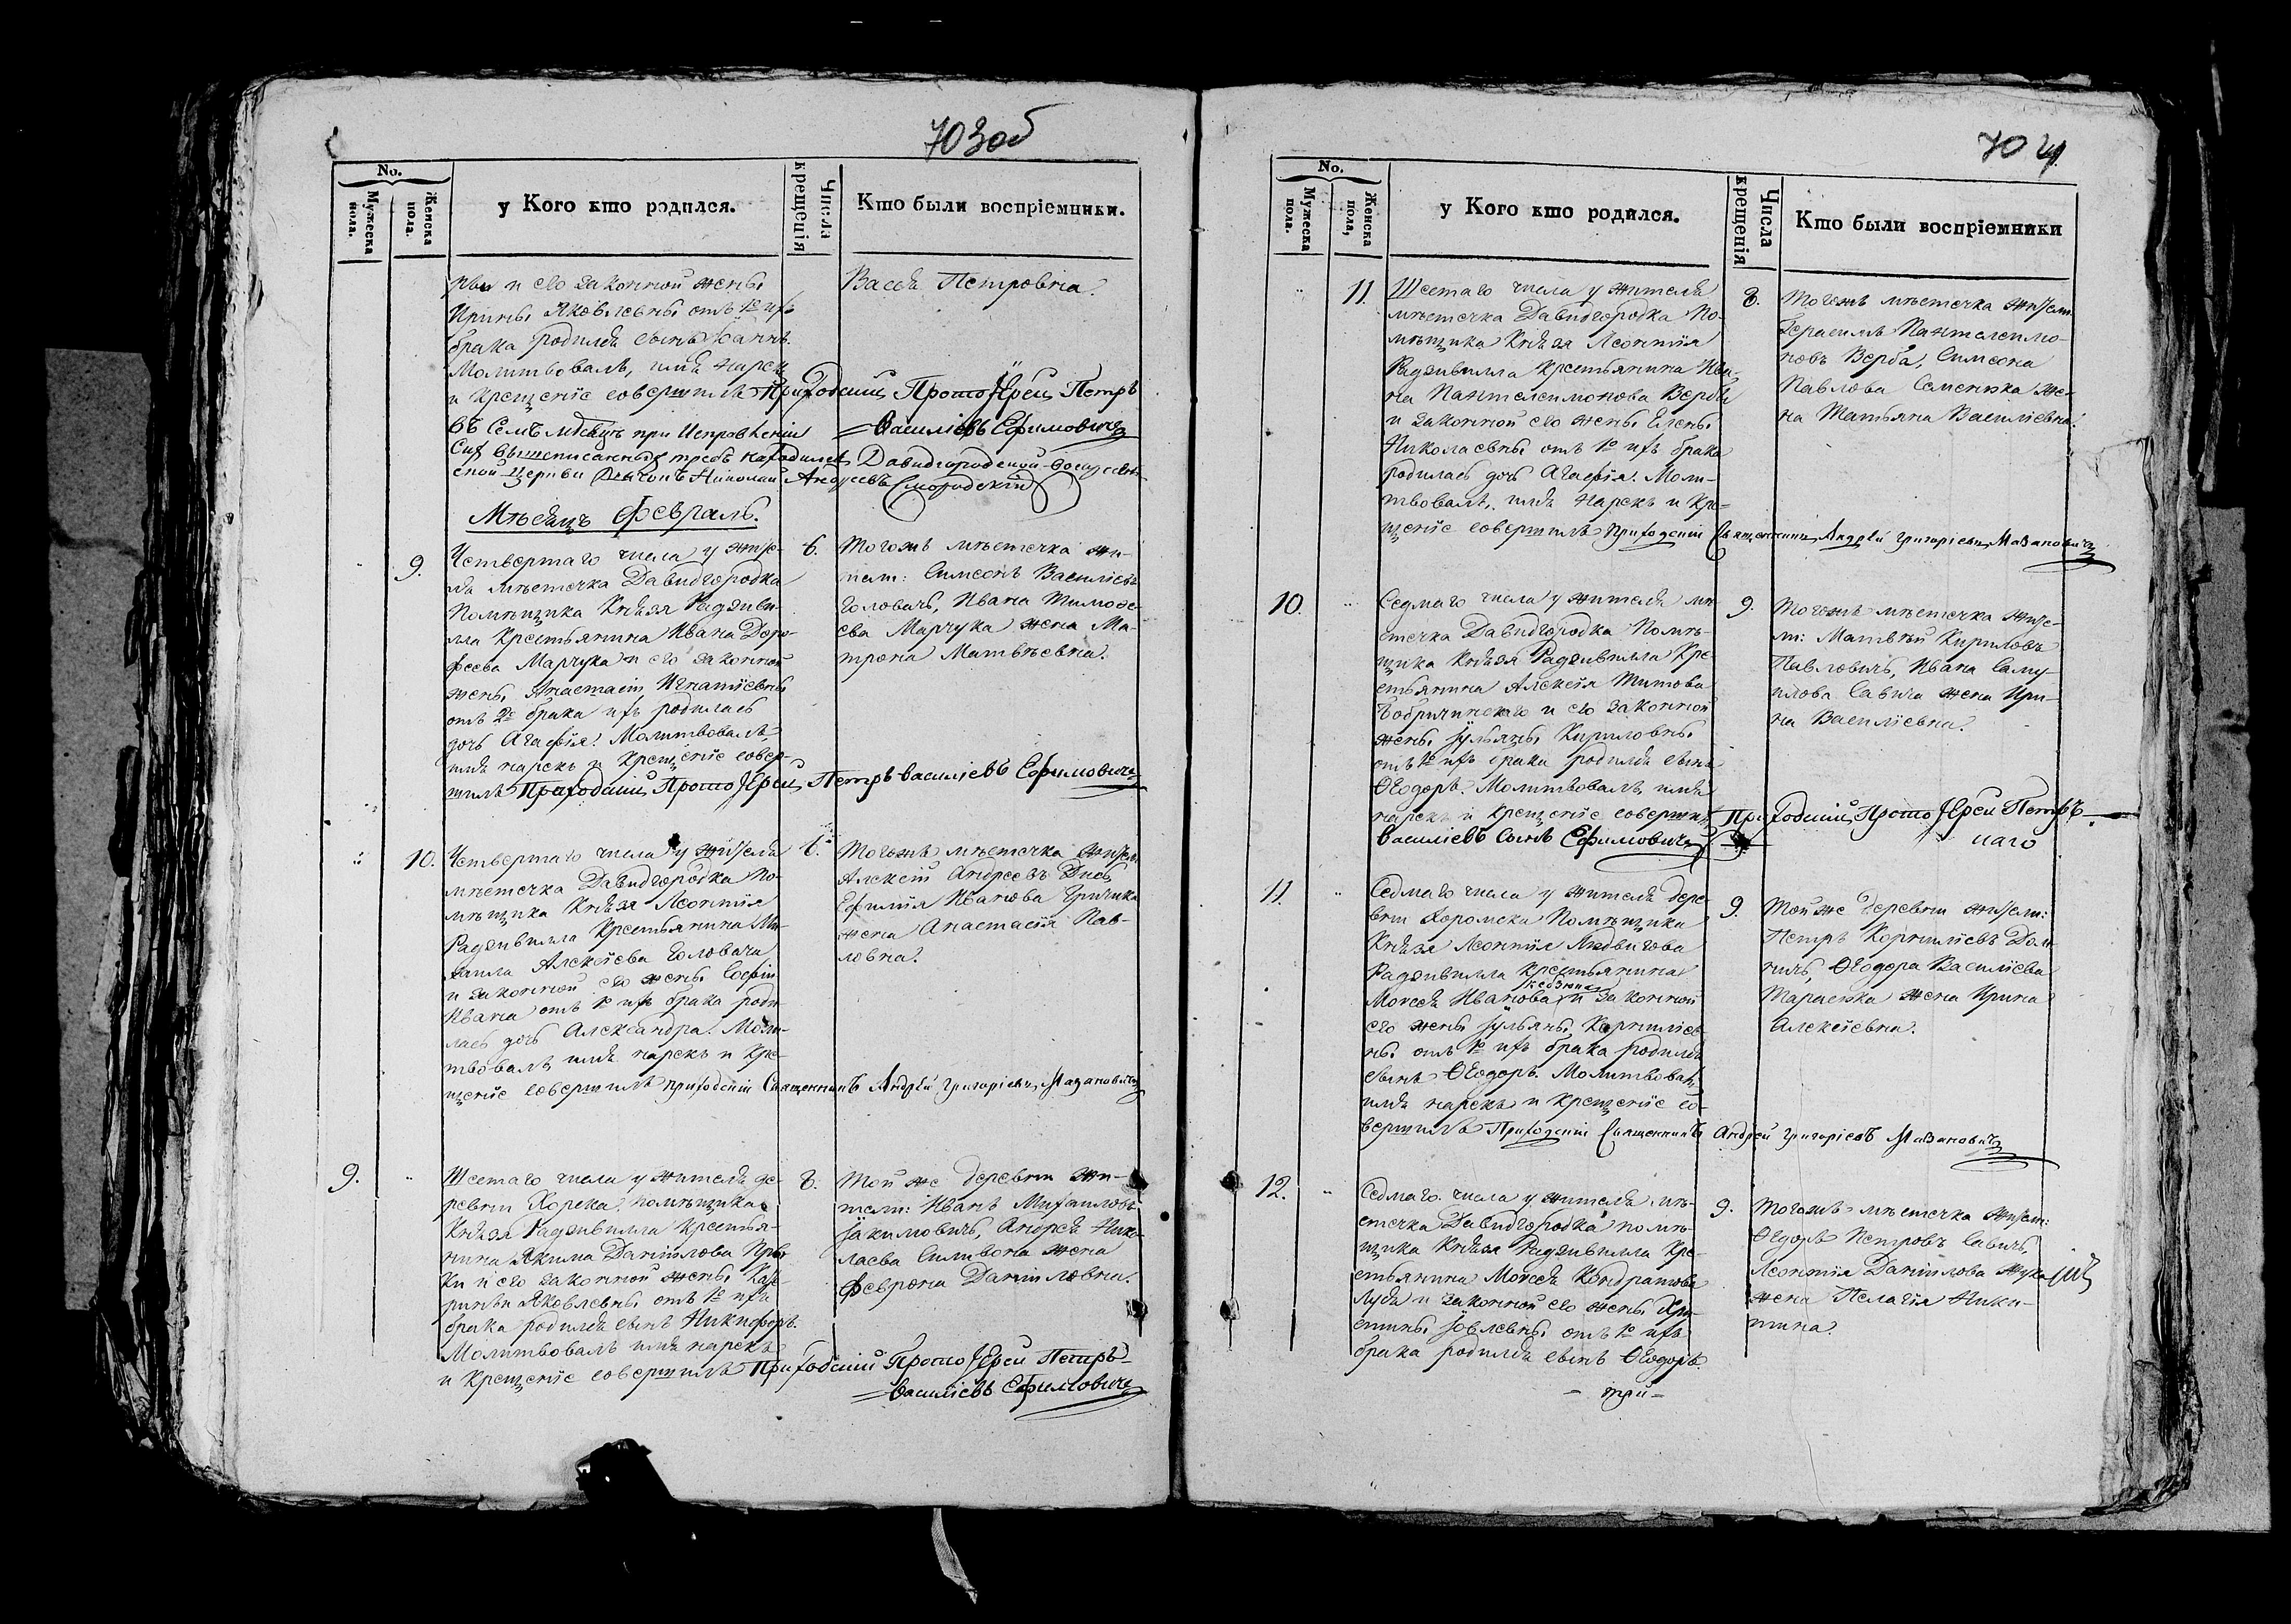 703об
No.
Мужеска пола.
Женска пола.
у Кого кто родился.
Числа крещенія
Кто были воспріемники.
и его законной жены
Ирины Яковлевны отъ 1го ихъ
брака родился сынъ Іоаннъ.
Молитвовалъ, имя нарекъ
и крещеніе совершилъ Приходскій ПротоІерей Петръ
Васильевъ Ефимовичъ
Васса Петровна.
въ семъ мѣсяцѣ при исправленіи
сихъ вышеписанныхъ требъ находился Давидгородской
ской церкви Дьячокъ Николай Андреевъ Смородскій
Мѣсяцъ Февраль.
9.
Четвертаго числа у жите-
ля мѣстечка Давидгородка
Помѣщика Князя Радзиви-
лла крестьянина Ивана Доро-
феева Марчука и его законной
жены Анастасіи Игнатіевны
отъ 2го брака ихъ родилась
дочь Агафія. Молитвовалъ,
имя нарекъ и крещеніе совер-
шилъ Приходскій ПротоІерей Петръ Васильевъ Ефимовичъ
6.
Тогожъ мѣстечка жи-
тели: Симеонъ Василіевъ
Головачъ, Ивана Тимофе-
ева Марчука жена Ма-
трона Матвѣевна.
10.
Четвертаго числа у жителя
мѣстечка Давидгородка По-
мѣщика Князя Леонтія
Радзивилла Крестьянина Ми-
хаила Алексіева Головача
и законной его жены Софіи
Ивана отъ 1го ихъ брака роди-
лась дочь Александра. Моли-
твовалъ имя нарекъ и кре-
щеніе совершилъ приходскій Священникъ Андрей Григоріевъ Мазановичъ
6.
Тогожъ мѣстечка жители:
Алексѣй Андреевъ
Ефимія Иванова Гричика
жена Анастасія Пав-
ловна.
9.
Шестаго числа у жителя де-
ревни Хорска, помѣщика
Князя Радзивилла крестья-
нина Якима Даніилова
и его законной жены Кате-
рины Яковлевны отъ 1го ихъ
брака родился сынъ Никифоръ.
Молитвовалъ имя нарекъ
и Крещеніе совершилъ Приходскій ПротоІерей Петръ
Васильевъ Ефимовичъ
8.
Той же деревни жи-
тели: Иванъ Михаиловъ
Якимовичъ, Андрея Нико-
лаева Силивона жена
Феврона Данииловна.
704
No.
Мужеска пола.
Женска пола,
у Кого кто родился.
Числа крещенія
Кто были воспріемники
11.
Шестаго числа у жителя
мѣстечка Давидгородка По-
мѣщика Князя Леонтія
Радзивилла Крестьянина Ива-
на Пантелеимонова Вербы
и законной его жены Елены
Николаевны отъ 1го ихъ брака
родилась дочь Агафія. Моли-
твовалъ, имя нарекъ и кре-
щеніе совершилъ Приходскій Священникъ Андрей Григоріевъ Мазановичъ
8.
Тогожъ мѣстечка жители
Герасимъ Пантелеимо-
новъ Верба, Симеона
Павлова Семенюка же-
на Татьяна Василіевна.
10.
Седмаго числа у жителя мѣ-
стечка Давидгородка Помѣ-
щика Князя Радзивилла Кре-
стьянина Алексія Титова
Бобричинскаго и его законной
жены Іульяны Кириловны
отъ 1го ихъ брака родился сынъ
Ѳеодоръ. Молитвовалъ имя
нарекъ и крещеніе совершилъ Приходскій ПротоІерей Петръ
Васильевъ сынъ Ефимовичъ
9.
Тогожъ мѣстечка жите-
ли: Матвѣй Кириловъ
Павловичъ, Ивана Саму-
илова Савича жена Ири-
на Василіевна.
наго
11.
Седмаго числа у жителя дере-
вни Хоромска Помѣщика
Князя Леонтія Людвигова
Радзивилла крестьянина
Моисея Иванова и законной
его жены Іульяны Корниліев-
ны отъ 1го ихъ брака родился
сынъ Ѳеодоръ. Молитвовалъ
имя нарекъ и крещеніе со-
вершилъ Приходскій Священникъ Андрей Григоріевъ Мазановичъ
9.
Той же деревни жители:
Петръ Корниліевъ
Ѳеодора Василіева
Тарасюка жена Ирина
Алексіевна.
12.
Седмаго числа у жителя мѣ-
стечка Давидгородка помѣ-
щика Князя Радзивилла Кре-
стьянина Моисея Кондратова
и законной его жены Хри-
стины Іовлевны отъ 1го ихъ
брака родился сынъ Ѳеодоръ.
– три –
9.
Тогожъ мѣстечка жители:
Ѳедоръ Петровъ Савичъ,
Леонтія Даниилова Жука
жена Пелагія Ники-
тина.